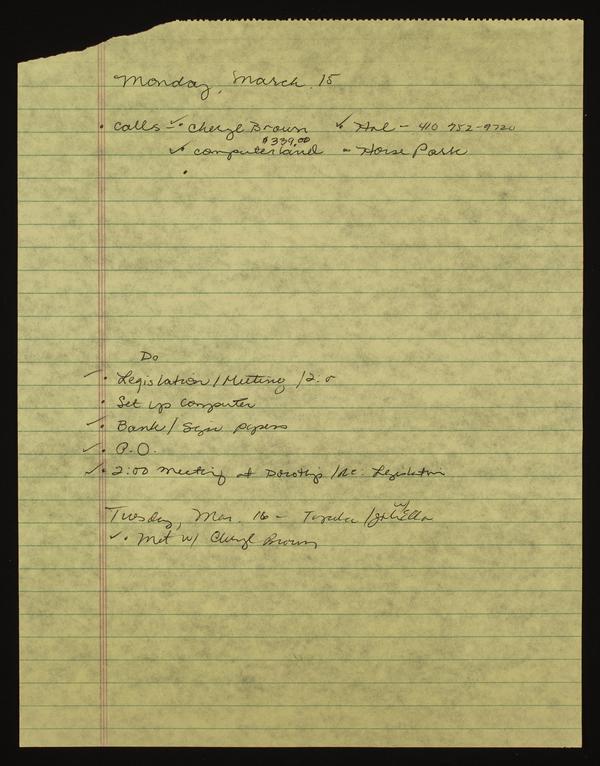 Monday, March 15
• Calls - ✓• Cheryl Brown ✓ Hal - 410 752-9720
$339.00
✓ computerland - Horse Park
•
Do
• Legislation / Meeting / 2:0
• Set up Computer
✓• Bank / Sign papers
✓• P.O.
✓• 2:00 meeting at Dorothy's / re: Legislation
Tuesday, Mar. 16 - w/
✓• Met w/ Cheryl Brown